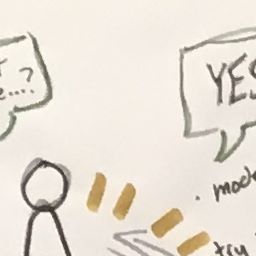 e....?
YES
. mod
try